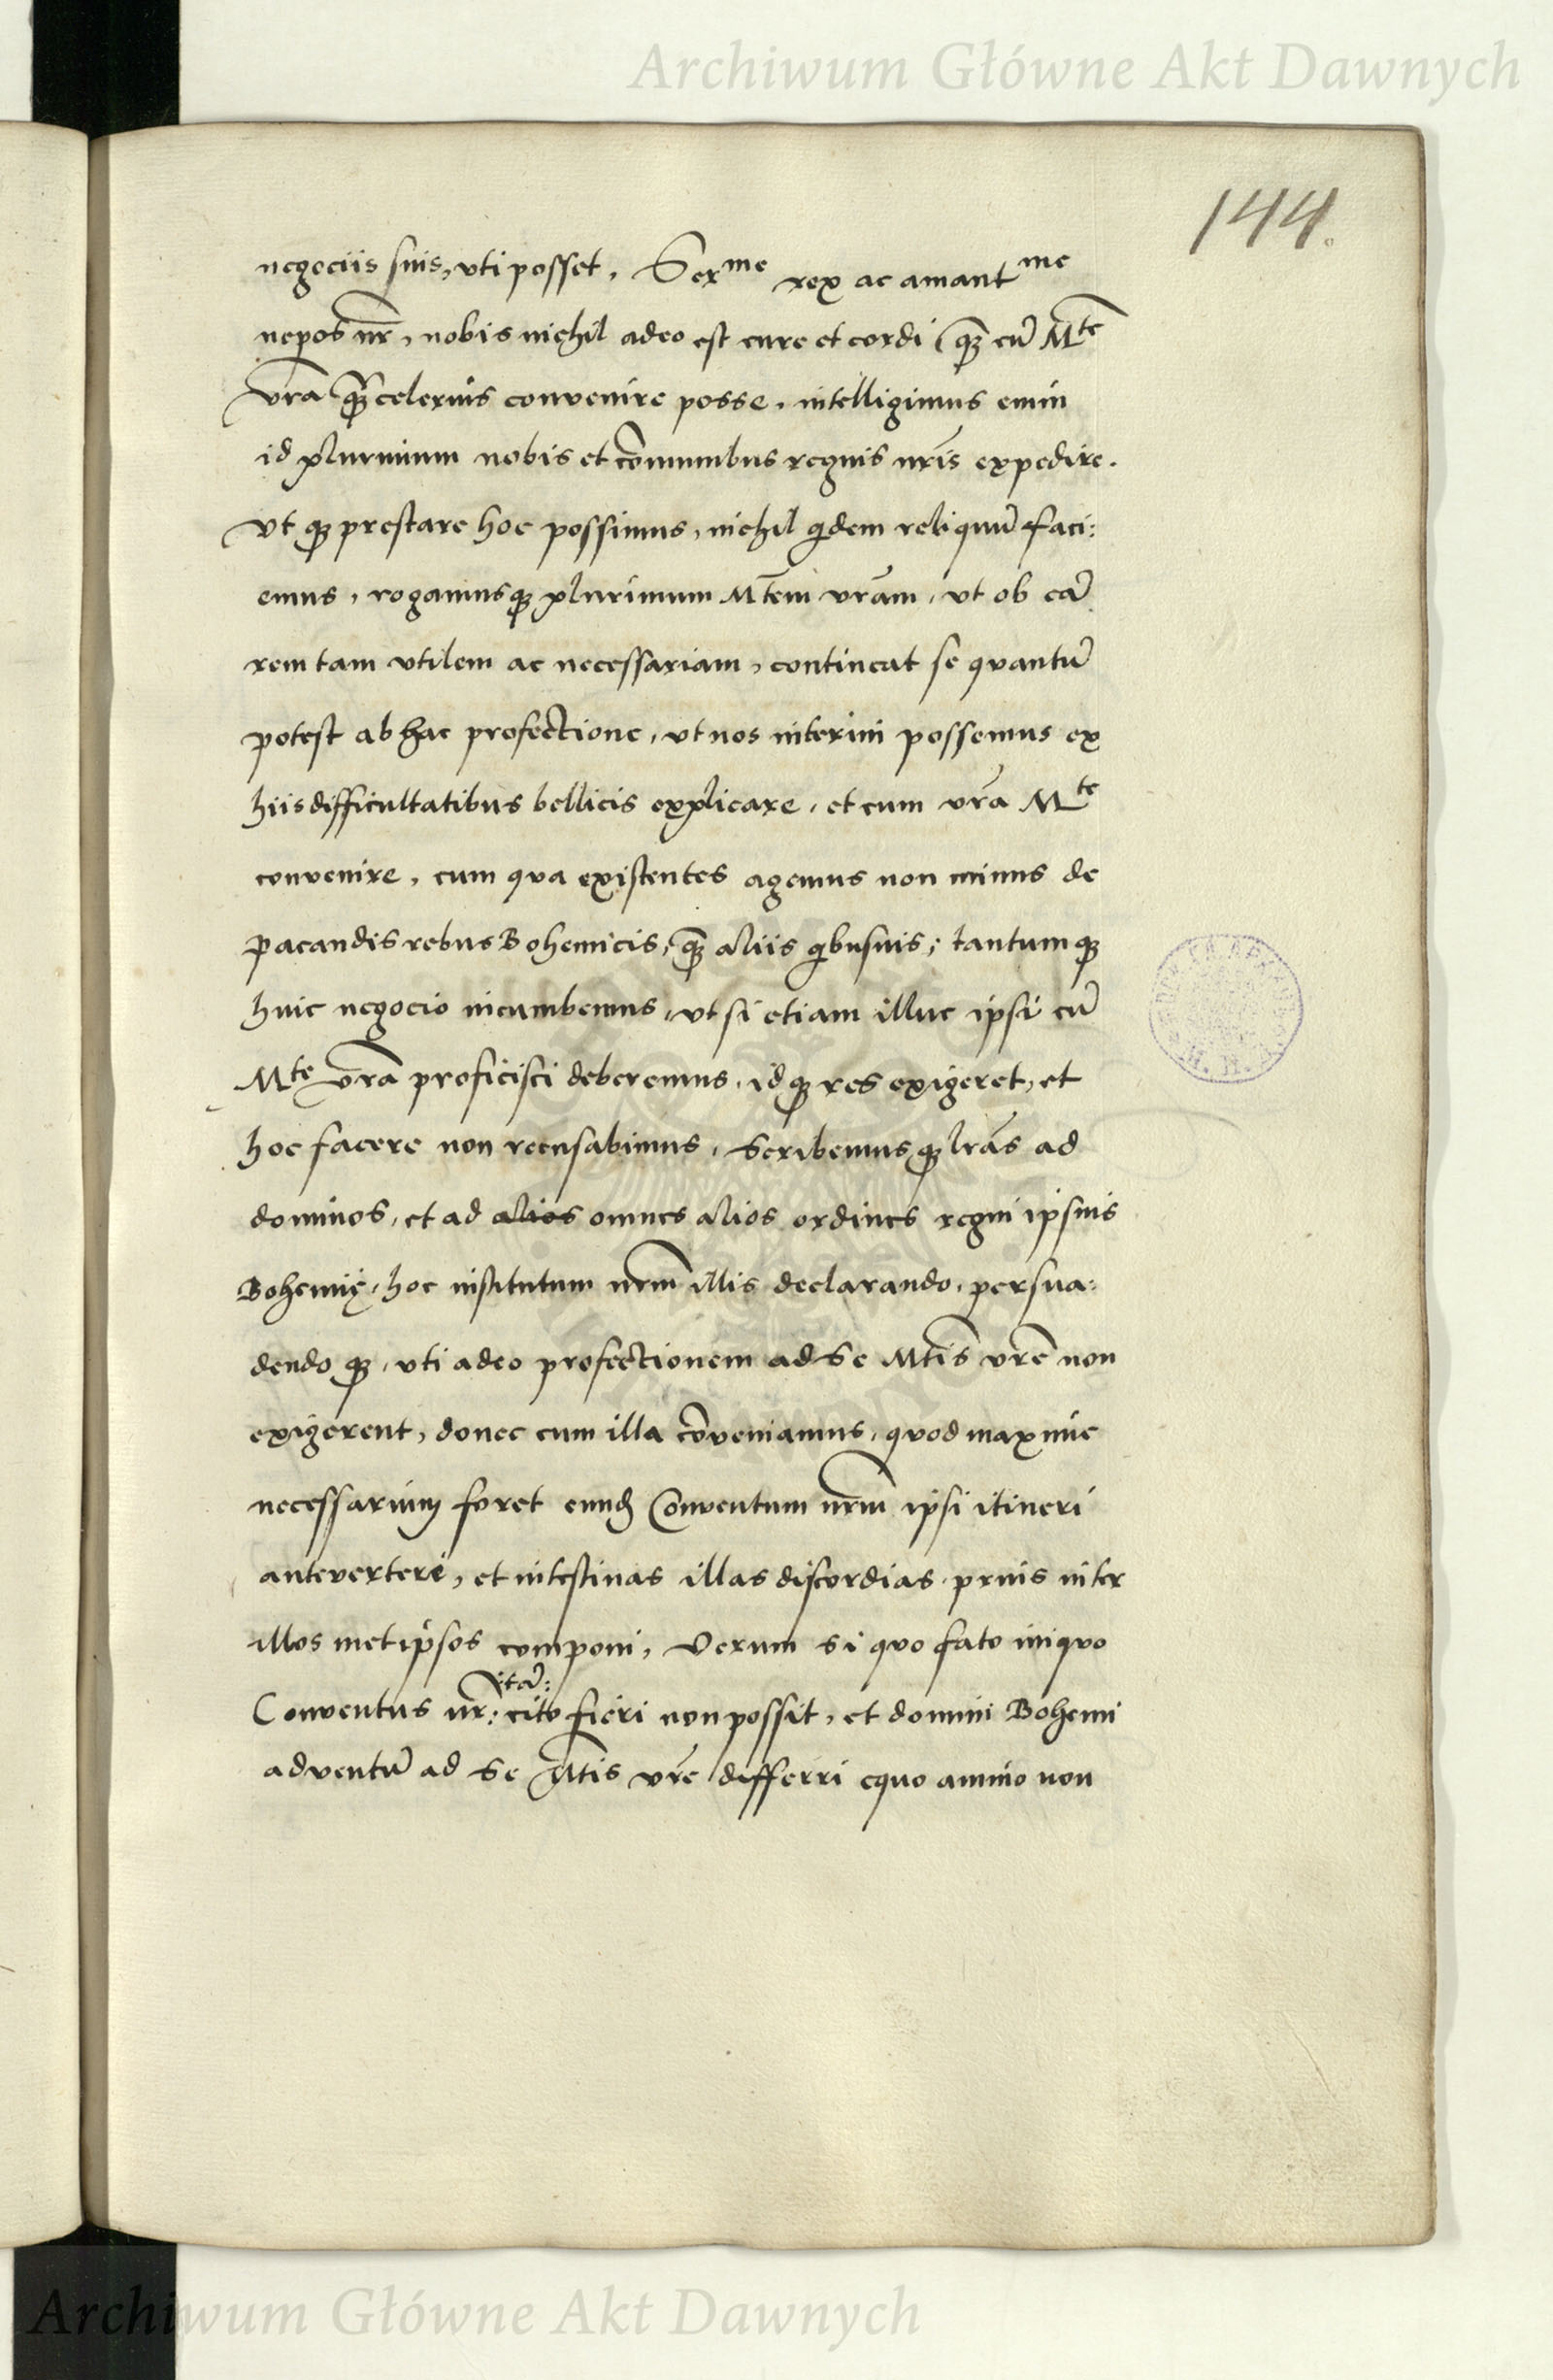 Archiwum Główne Akt Dawnych
144.
negociis suis, uti posset. Ser^me rex ac amant^me
nepos nr̄, nobis nichil adeo est cure et cordi (qȝ̄ cū M^te
vrā qȝ̄ celerius convenire posse, intelligimus enim
id plurimum nobis et cōmunibus regnis nrīs expedire.
Ut qȝ prestare hoc possimus, nichil qͥdem reliquū faci:
emus, rogamusqȝ plurimum Mtēm vrām, ut ob eā
rem tam utilem ac necessariam, contineat se quantū
potest ab hac profectione, ut nos interim possemus ex
hiis difficultatibus bellicis explicare, et cum vrā M^te
convenire, cum qua existentes agemus non minus de
pacandis rebus Bohemicis, qȝ̄ aliis qͥbusuis; tantumqȝ
huic negocio incumbemus, ut si etiam illuc ipsi cū
M^te vrā proficisci deberemus, idqȝ res exigeret, et
hoc facere non recusabimus. Scribemusqȝ lrās ad
dominos, et ad alios omnes alios ordines regni ipsius
Bohemię, hoc institutum nrm̄ illis declarando, persua:
dendo qȝ, uti adeo profectionem ad se Mtīs vrē non
exigerent, donec cum illa cōveniamus, quod maxime
necessarium foret eund Conventum nrm̄ ipsi itineri
antevertere, et intestinas illas discordias prius inter
illos met ipsos componi, Verum si quo fato iniquo
itā:
Conventus nr̄: cito fieri non possit, et domini Bohemi
adventū ad se Mtīs vrē differri equo animo non
Archiwum Główne Akt Dawnych